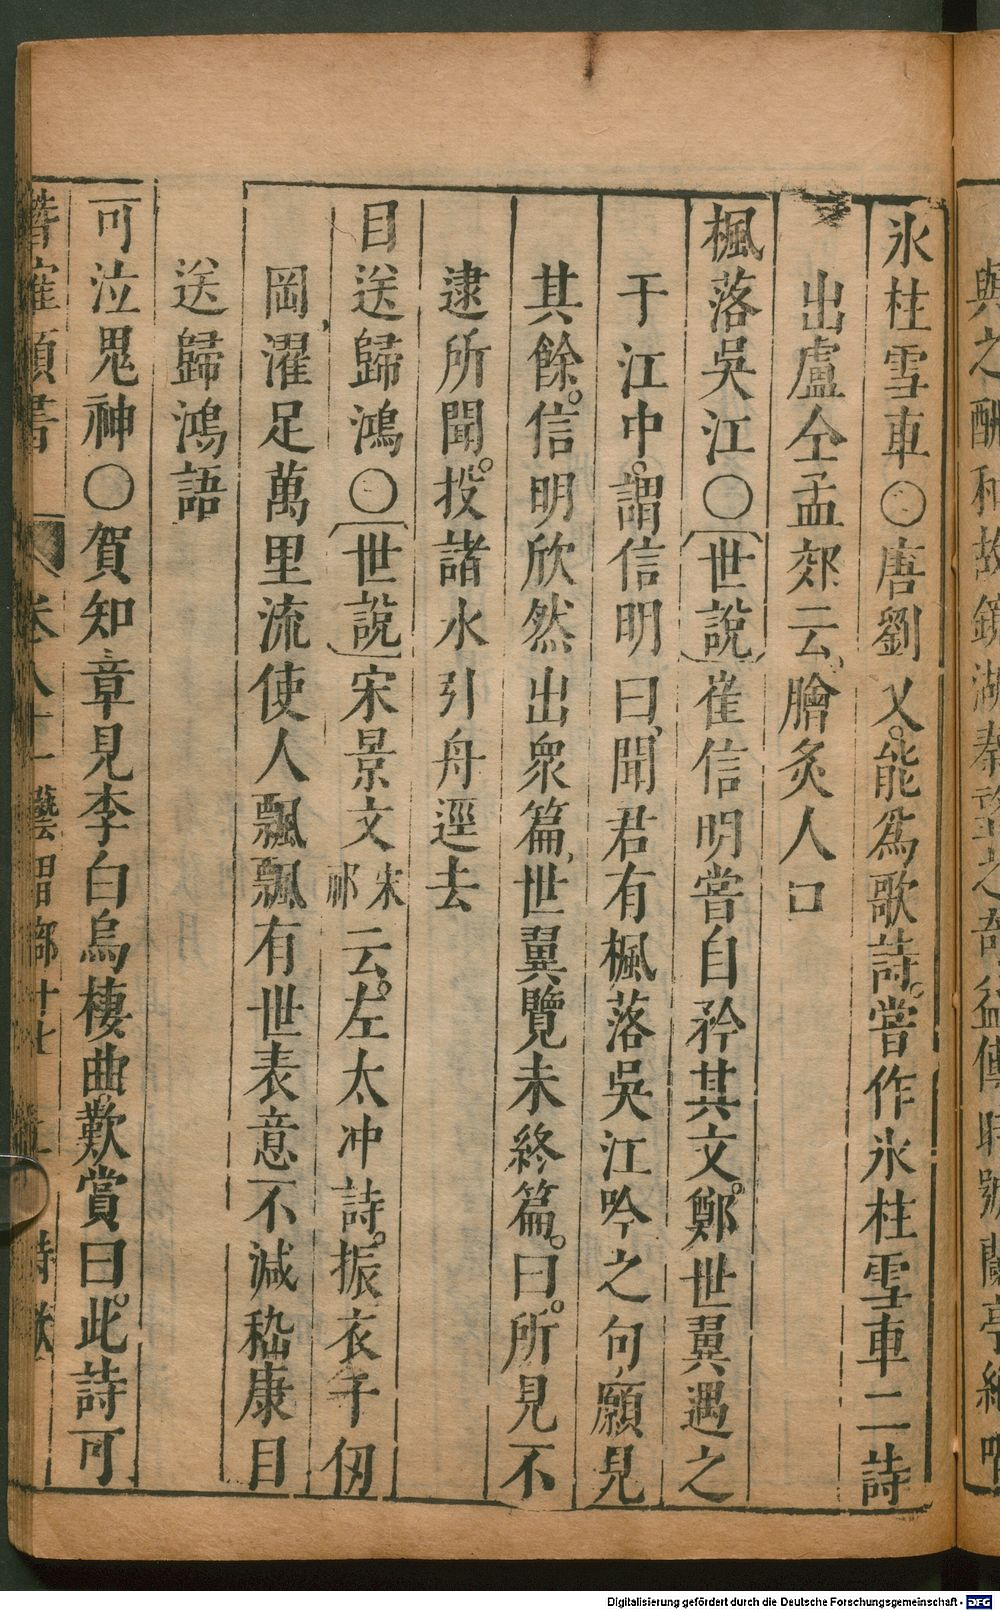 與之酬和故鏡湖秦望之奇益傳時號蘭亭絶唱
氷柱雪車○唐劉乂能爲歌詩嘗作氷柱雪車二詩
出盧仝孟郊云膾炙人口
楓落吳江○世說崔信明嘗自矜其文鄭世翼遇之
于江中謂信明曰聞君有楓落吳江吟之句願見
其餘信明欣然出衆篇世翼覽未終篇曰所見不
逮所聞投諸水引舟逕去
目送歸鴻○世說宋景文宋祁云左太冲詩振衣千仞
岡濯足萬里流使人飄飄有世表意不减嵇康目
送歸鴻語
可泣鬼神○賀知章見李白烏棲曲歎賞曰此詩可
潛確類書 卷八十一藝習部十七 詩歌
Digitalisierung gefördert durch die Deutsche Forschungsgemeinschaft - DFG